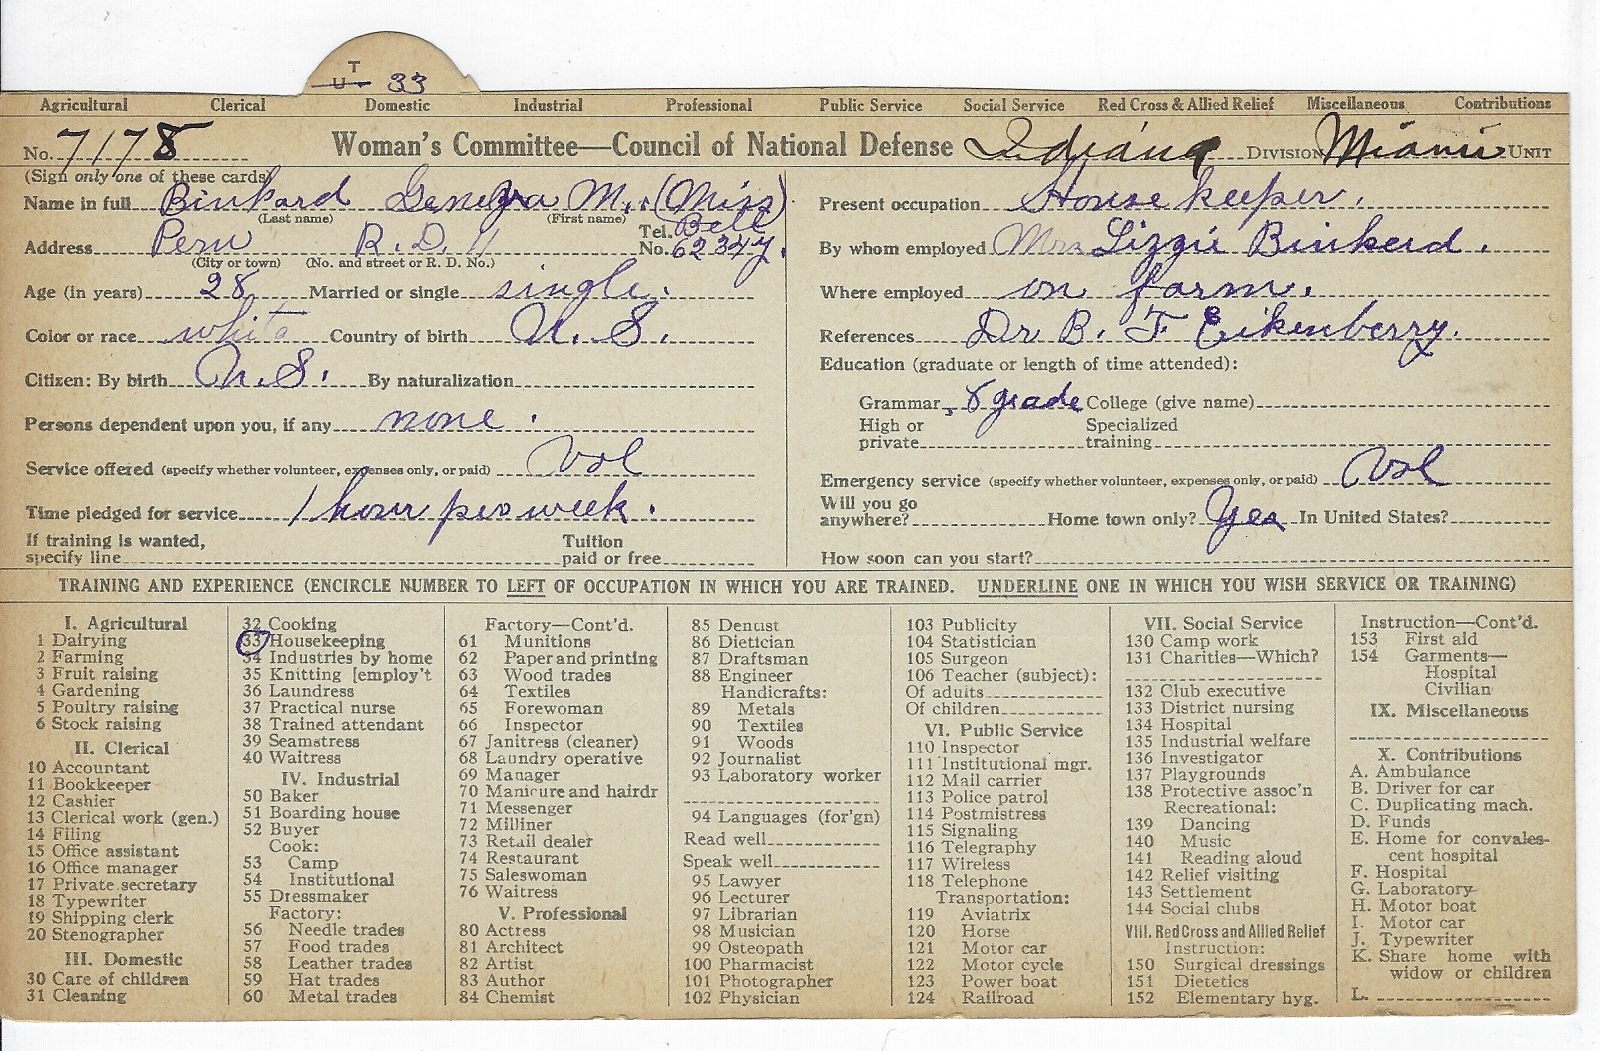 T
U 33
Agricultural Clerical Domestic Industrial Professional Public Service Social Service Red Cross & Allied Relief Miscellaneous Contributions
No. 7178 Woman's Committee—Council of National Defense Indiana Division Miami Unit
(Sign only one of these cards)
Name in full Binkard Geneva M. (Miss)
(Last name) (First name)
Address Peru R. D. 11 Tel. No. Bell 6234y.
(City or town) (No. and street or R. D. No.)
Age (in years) 28 Married or single single.
Color or race white Country of birth U. S.
Citizen: By birth U. S. By naturalization
Persons dependent upon you, if any none.
Service offered (specify whether volunteer, expenses only, or paid) Vol
Time pledged for service 1 hour per week.
If training is wanted, specify line Tuition paid or free
Present occupation House keeper.
By whom employed Mrs Lizzie Binkerd.
Where employed on farm.
References Dr B. F. Eikenberry.
Education (graduate or length of time attended):
Grammar 8 grade College (give name)
High or private Specialized training
Emergency service (specify whether volunteer, expenses only, or paid) Vol
Will you go anywhere? Home town only? Yes In United States?
How soon can you start?
TRAINING AND EXPERIENCE (ENCIRCLE NUMBER TO LEFT OF OCCUPATION IN WHICH YOU ARE TRAINED. UNDERLINE ONE IN WHICH YOU WISH SERVICE OR TRAINING)
I. Agricultural
1 Dairying
2 Farming
3 Fruit raising
4 Gardening
5 Poultry raising
6 Stock raising
II. Clerical
10 Accountant
11 Bookkeeper
12 Cashier
13 Clerical work (gen.)
14 Filing
15 Office assistant
16 Office manager
17 Private secretary
18 Typewriter
19 Shipping clerk
20 Stenographer
III. Domestic
30 Care of children
31 Cleaning
32 Cooking
33 Housekeeping
34 Industries by home
35 Knitting [employ't
36 Laundress
37 Practical nurse
38 Trained attendant
39 Seamstress
40 Waitress
IV. Industrial
50 Baker
51 Boarding house
52 Buyer
Cook:
53 Camp
54 Institutional
55 Dressmaker
Factory:
56 Needle trades
57 Food trades
58 Leather trades
59 Hat trades
60 Metal trades
Factory—Cont'd.
61 Munitions
62 Paper and printing
63 Wood trades
64 Textiles
65 Forewoman
66 Inspector
67 Janitress (cleaner)
68 Laundry operative
69 Manager
70 Manicure and hairdr
71 Messenger
72 Milliner
73 Retail dealer
74 Restaurant
75 Saleswoman
76 Waitress
V. Professional
80 Actress
81 Architect
82 Artist
83 Author
84 Chemist
85 Dentist
86 Dietician
87 Draftsman
88 Engineer
Handicrafts:
89 Metals
90 Textiles
91 Woods
92 Journalist
93 Laboratory worker
94 Languages (for'gn)
Read well
Speak well
95 Lawyer
96 Lecturer
97 Librarian
98 Musician
99 Osteopath
100 Pharmacist
101 Photographer
102 Physician
103 Publicity
104 Statistician
105 Surgeon
106 Teacher (subject):
Of adults
Of children
VI. Public Service
110 Inspector
111 Institutional mgr.
112 Mail carrier
113 Police patrol
114 Postmistress
115 Signaling
116 Telegraphy
117 Wireless
118 Telephone
Transportation:
119 Aviatrix
120 Horse
121 Motor car
122 Motor cycle
123 Power boat
124 Railroad
VII. Social Service
130 Camp work
131 Charities—Which?
132 Club executive
133 District nursing
134 Hospital
135 Industrial welfare
136 Investigator
137 Playgrounds
138 Protective assoc'n
Recreational:
139 Dancing
140 Music
141 Reading aloud
142 Relief visiting
143 Settlement
144 Social clubs
VIII. Red Cross and Allied Relief
Instruction:
150 Surgical dressings
151 Dietetics
152 Elementary hyg.
Instruction—Cont'd.
153 First aid
154 Garments—
Hospital
Civilian
IX. Miscellaneous
X. Contributions
A. Ambulance
B. Driver for car
C. Duplicating mach.
D. Funds
E. Home for convales-
cent hospital
F. Hospital
G. Laboratory
H. Motor boat
I. Motor car
J. Typewriter
K. Share home with
widow or children
L.